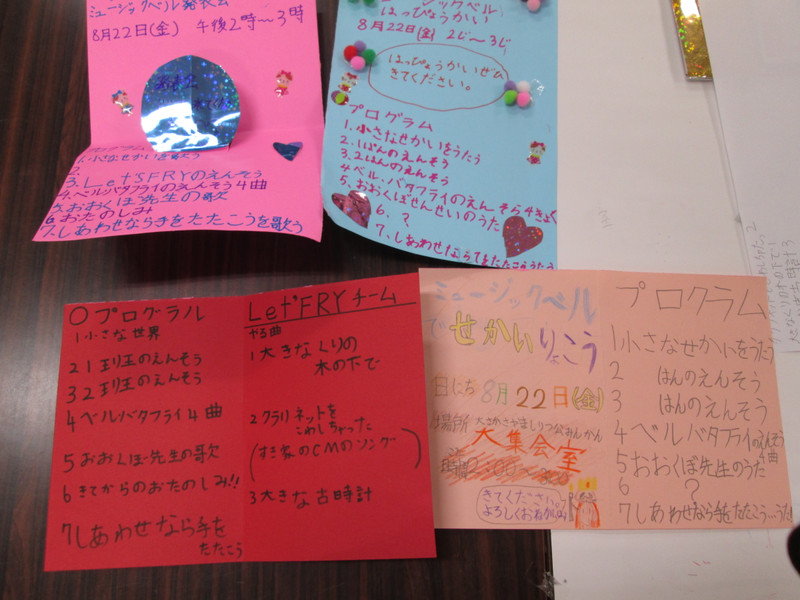 ミュージックベル発表会
8月22日(金) 午後2時〜3時
プログラム
1.小さなせかいを歌う
2.
3.Let'SFRYのえんそう
4.ベルバタフライのえんそう4曲
5.おおくぼ先生の歌
6.おたのしみ
7.しあわせなら手をたたこうを歌う
ミュージックベル
はっぴょうかい
8月22日(金) 2じ〜3じ
はっぴょうかいぜひ
きてください。
プログラム
1.小さなせかいをうたう
2.1ぱんのえんそう
3.2はんのえんそう
4ベル・バタフライのえんそう4きょく
5.おおくぼせんせいのうた
6.?
7.しあわせならてをたたこうをうたう
〇プログラル
1小さな世界
2 1班のえんそう
3 2班のえんそう
4ベルバタフライ4曲
5おおくぼ先生の歌
6きてからのおたのしみ!!
7しあわせなら手を
たたこう
Let'FRYチーム
やる曲
1大きなくりの
木の下で
2クラリネットを
こわしちゃった
(すき家のCMのソング)
3大きな古時計
ミュージックベル
でせかいりょこう
日にち8月22日(金)
場所 大さかさやましりつ公みんかん
大集会室
きてください。
よろしくおねがいします
プログラム
1小さなせかいをうたう
2 はんのえんそう
3 はんのえんそう
4ベルバタフライのえんそう
4曲
5おおくぼ先生のうた
6 ?
7しあわせなら手をたたこう…うた!!